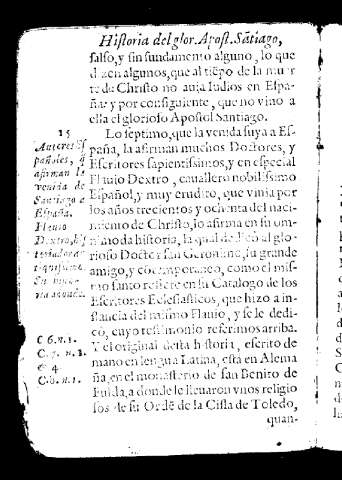 Historia del glor. Apost. Sãtiago,
falso, y sin fundamento alguno, lo que
dizen algunos, que al tiẽpo de la muer
te de Christo no auia Iudios en Espa-
ña: y por consiguiente, que no vino a
ella el glorioso Apostol Santiago.
15
Autores Es
pañoles, q̃
afirman la
venida de
Santiago a
España.
Flauio
Dextro,
Lo septimo, que la venida suya a Es-
paña, la afirman muchos Doctores, y
Escritores sapientissimos, y en especial
Flauio Dextro, cauallero nobilissimo
Español, y muy erudito, que viuia por
los años trecientos y ochenta del naci-
miento de Christo, lo afirma en su om-
nimoda historia, la qual dedicò al glo-
rioso Doctor san Geronimo, su grande
amigo, y cõtemporaneo, como el mis-
mo santo refiere en su Catalogo de los
Escritores Eclesiasticos, que hizo a in-
stancia del mismo Flauio, y se le dedi-
cò, cuyo testimonio referimos arriba.
C 6. n. 1.
C. 7. n. 1.
& 4
C. 8. n. 1.
Y el original desta historia, escrito de
mano en lengua Latina, està en Alema
ña, en el monasterio de san Benito de
Fulda, a donde le lleuaron vnos religio
sos de su Ordẽ de la Cisla de Toledo,
quan-